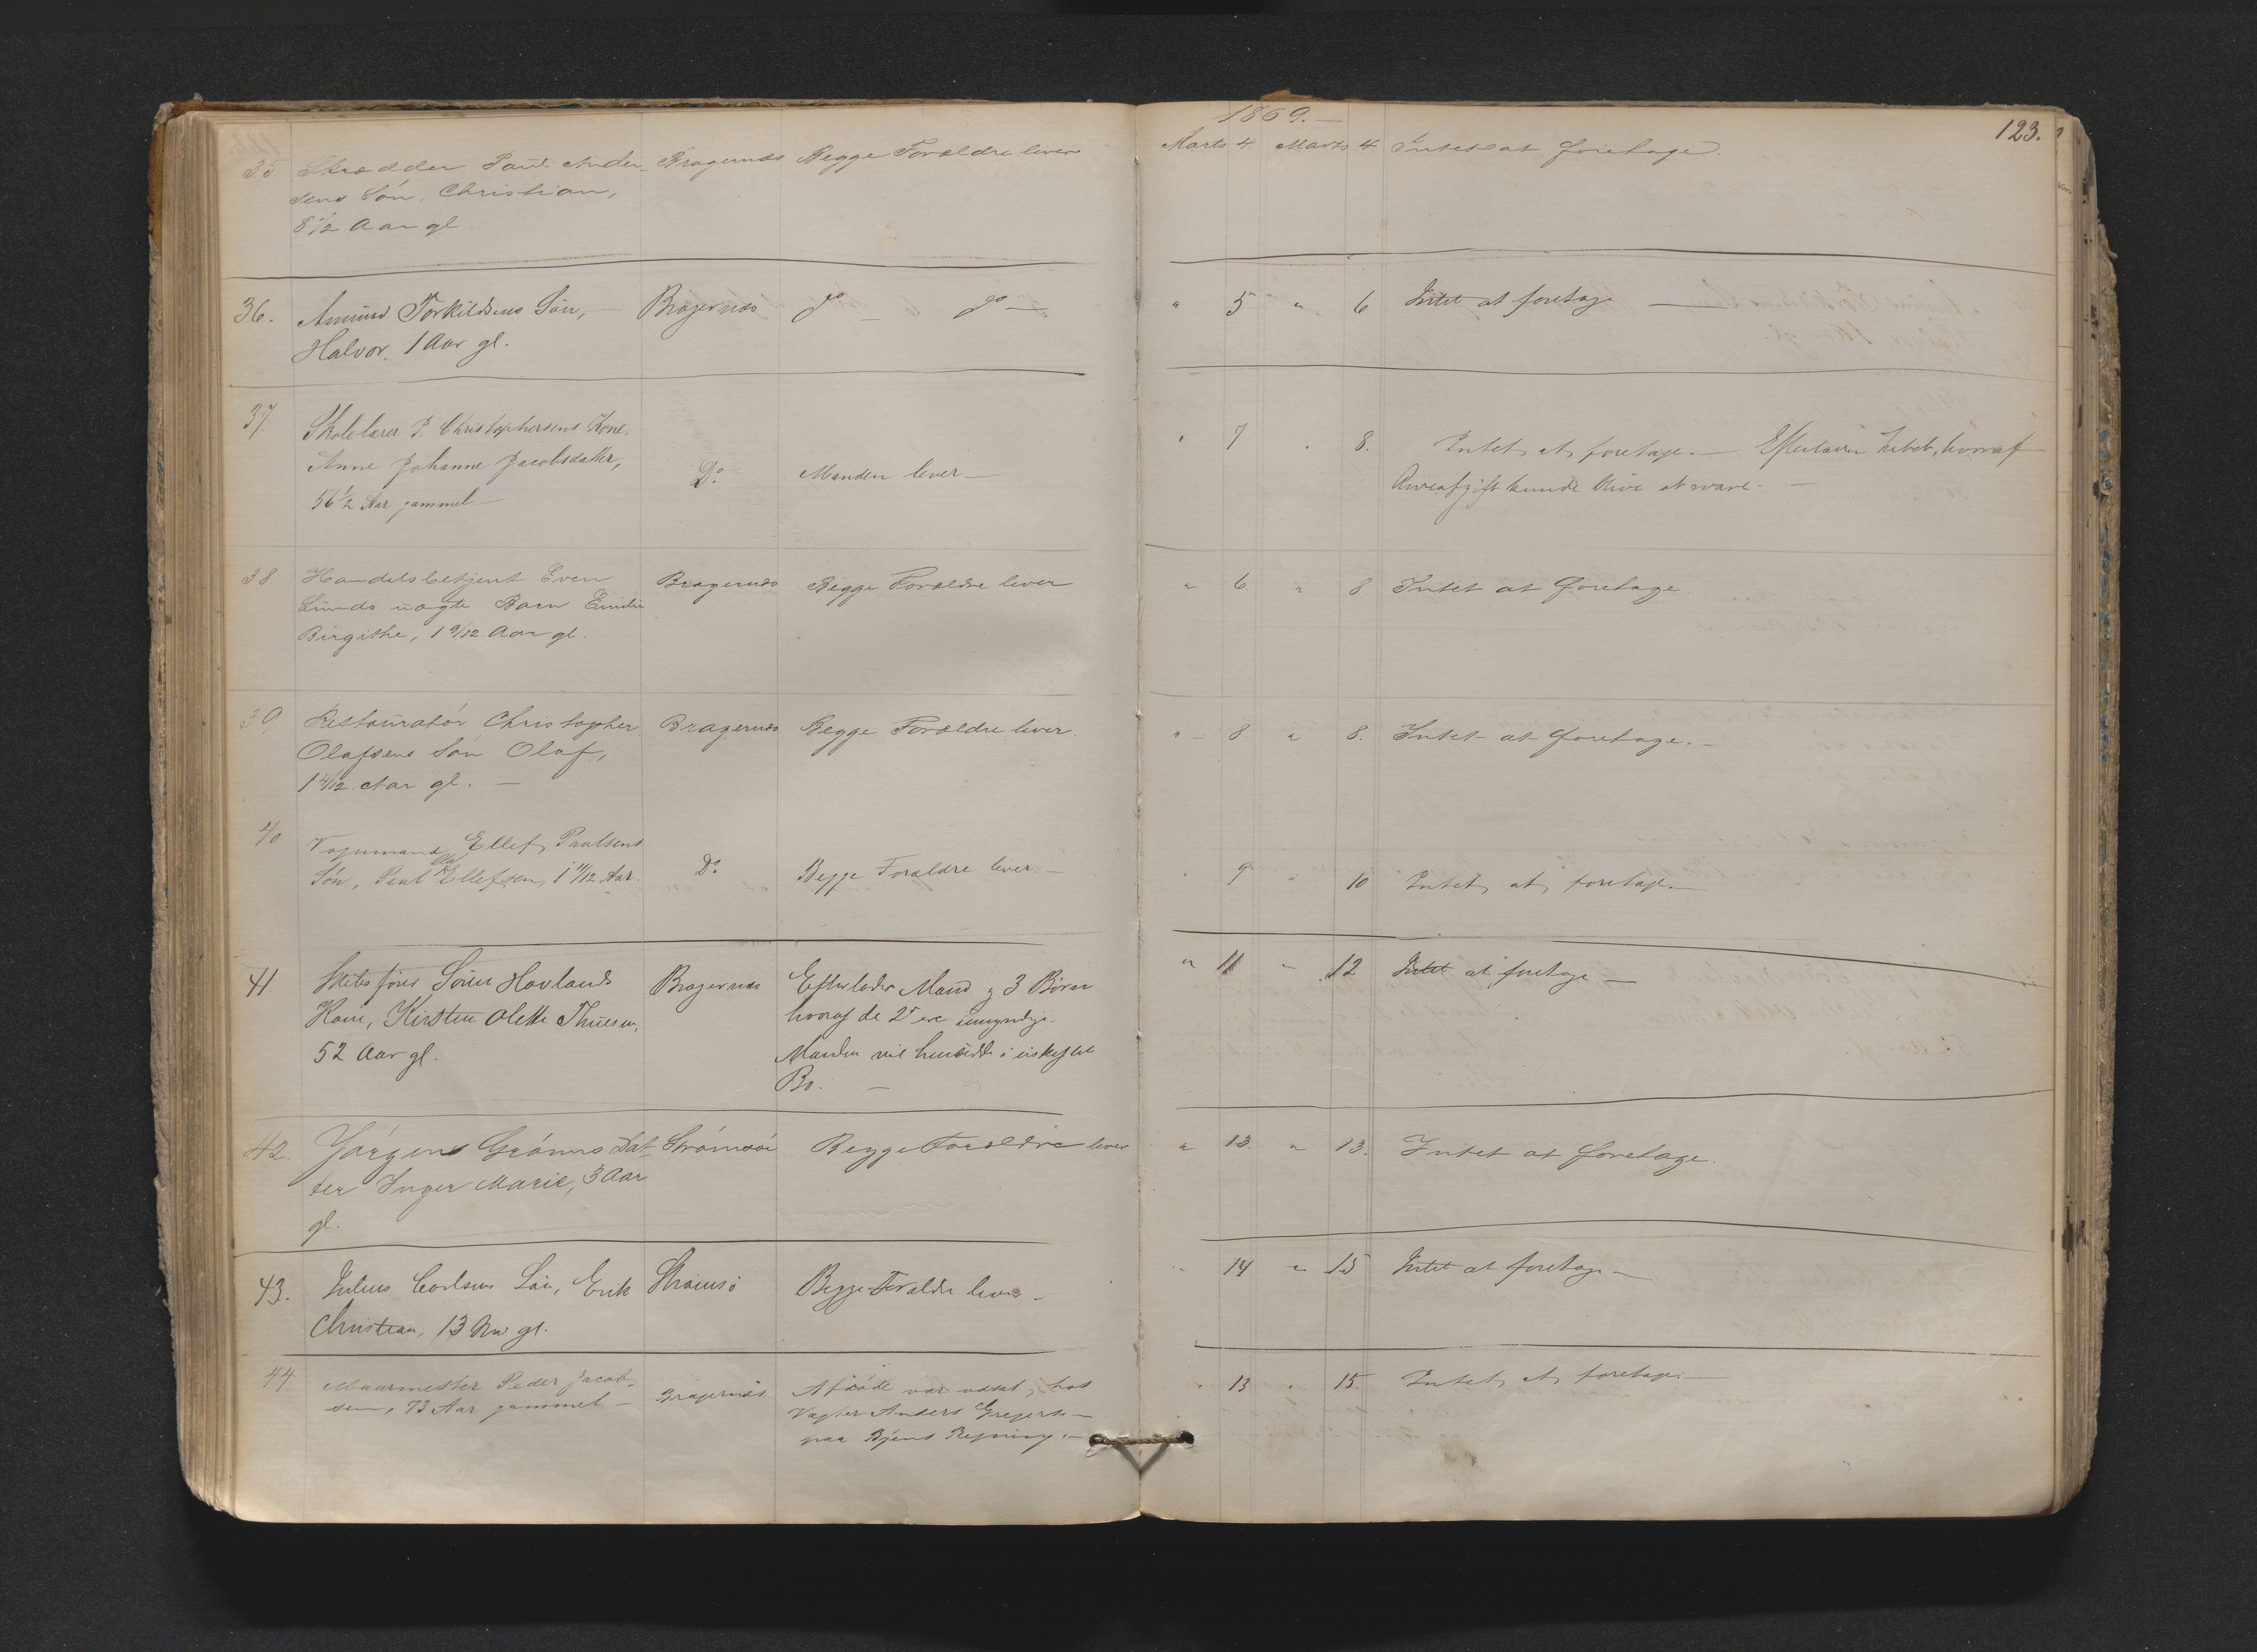 1869.
123.
35 Skrædder Paul Ander- Bragernæs Begge Forældre lever Marts 4. Marts 4 Intet at foretage.
sens Søn, Christian,
8 1/2 Aar gl
36. Amund Torkildsens Søn, Bragernæs do — do — " 5 " 6 Intet at foretage —
Halvor, 1 Aar gl.
37. Skolelærer P. Christophersens Kone, " 7 " 8. Intet at foretage. — Efterlader Intet, hvoraf
Anne Johanne Jacobsdatter, Do. Manden lever — Arveafgift kunde blive at svare. —
56 1/2 Aar gammel —
38 Handelsbetjent Even Bragernæs Begge Forældre lever " 6 " 8 Intet at foretage.
Lunds uægte Barn Emilie
Birgithe, 1 9/12 Aar gl.
39 Restauratør Christopher Bragernæs Begge Forældre lever. " 8 " 8. Intet at foretage. —
Olafsens Søn Olaf,
1 4/12 Aar gl. —
40 Vognmand Ellef Paulsens
Søn, Paul Ellefsen, 1 11/12 Aar. Do. Begge Forældre lever. — " 9 " 10 Intet at foretage —
41 Skibsfører Søren Hovlands Bragernæs Efterlader Mand og 3 Børn " 11 " 12 Intet at foretage —
Kone, Kirsten Olette Thuesen, hvoraf de 2de ere umyndige.
52 Aar gl. Manden vil hensidde i uskiftet
Bo. —
42. Jørgen Grønns Dat- Strømsøe Begge Forældre lever " 13. " 13. Intet at foretage.
ter Inger Marie, 3 Aar
gl.
43. Julius Carlsens Søn, Erik Strømsø Begge Forældre lever — " 14 " 15 Intet at foretage —
Christian, 13 Aar gl.
44. Muurmester Peder Jacob- Bragernæs Afdøde var udsat hos " 13 " 15. Intet at foretage —
sen, 73 Aar gammel — Vægter Anders Gregersen
paa Byens Regning. —